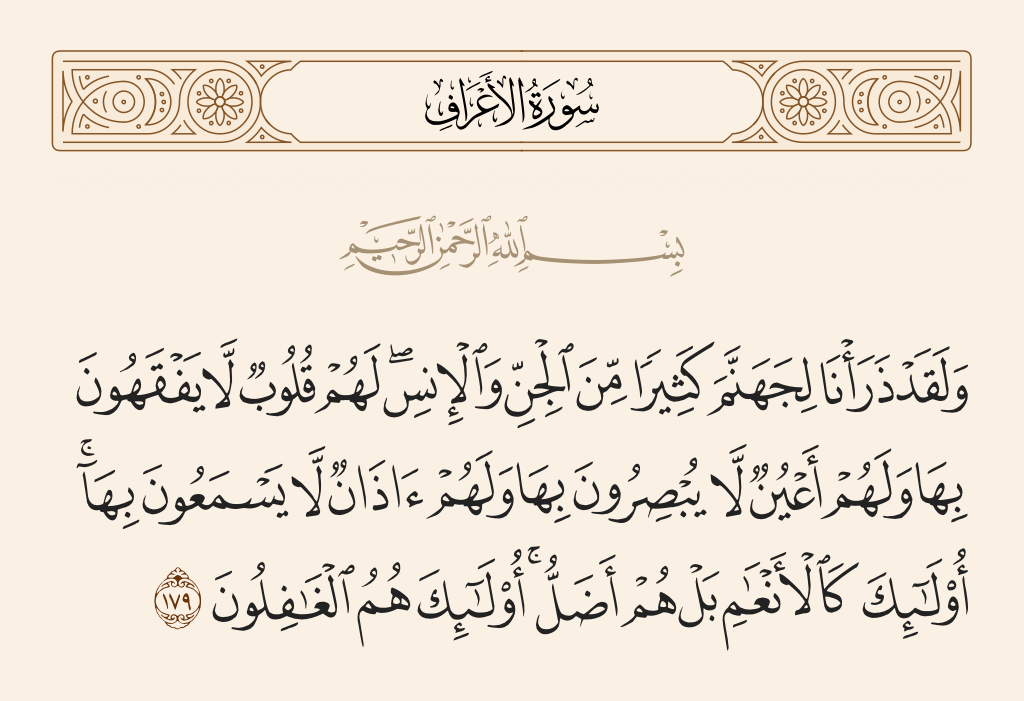 سُورَةُ الأَعْرَافِ
بِسْمِ ٱللَّهِ ٱلرَّحْمَٰنِ ٱلرَّحِيمِ
وَلَقَدْ ذَرَأْنَا لِجَهَنَّمَ كَثِيرًا مِّنَ ٱلْجِنِّ وَٱلْإِنسِ ۖ لَهُمْ قُلُوبٌ لَّا يَفْقَهُونَ
بِهَا وَلَهُمْ أَعْيُنٌ لَّا يُبْصِرُونَ بِهَا وَلَهُمْ ءَاذَانٌ لَّا يَسْمَعُونَ بِهَآ ۚ
أُو۟لَـٰٓئِكَ كَٱلْأَنْعَـٰمِ بَلْ هُمْ أَضَلُّ ۚ أُو۟لَـٰٓئِكَ هُمُ ٱلْغَـٰفِلُونَ ١٧٩